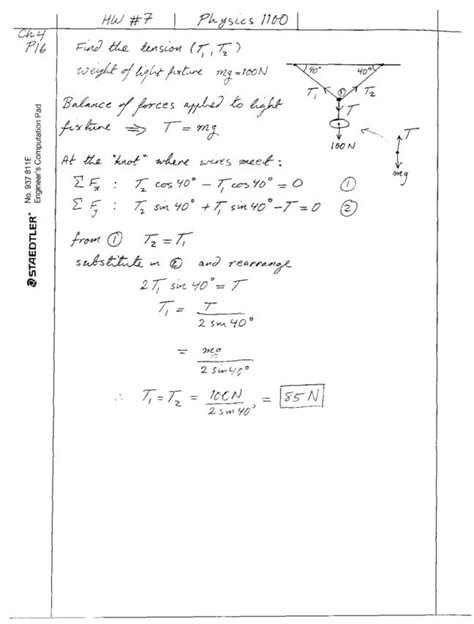 HW #7 | Physics 1100
Ch 4
P16
Find the tension (T₁, T₂)
weight of light fixture mg = 100N
40° 40°
T₁ T₂
T
100N
T
mg
Balance of forces applied to light
fixture ⇒ T = mg
At the "knot" where wires meet:
Σ Fₓ : T₂ cos 40° − T₁ cos 40° = 0 ①
Σ Fᵧ : T₂ sin 40° + T₁ sin 40° − T = 0 ②
from ① T₂ = T₁
substitute in ② and rearrange
2T₁ sin 40° = T
T₁ = T / 2 sin 40°
= mg / 2 sin 40°
∴ T₁ = T₂ = 100N / 2 sin 40° = 85 N
No. 937 811E
Engineer's Computation Pad
STAEDTLER